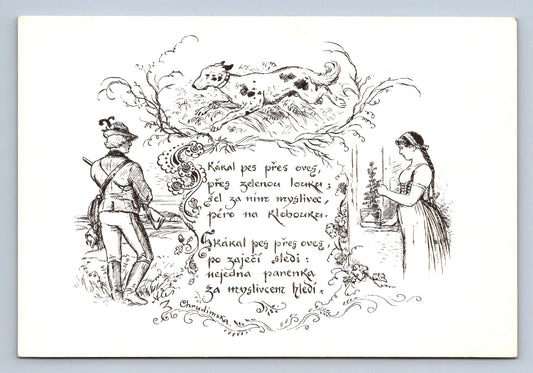 Skákal pes přes oves,
přes zelenou louku;
šel za ním myslivec,
péro na klobouku.
Skákal pes přes oves,
po zaječí slédi:
nejedna panenka
za myslivcem hledí.
Z Chrudimska